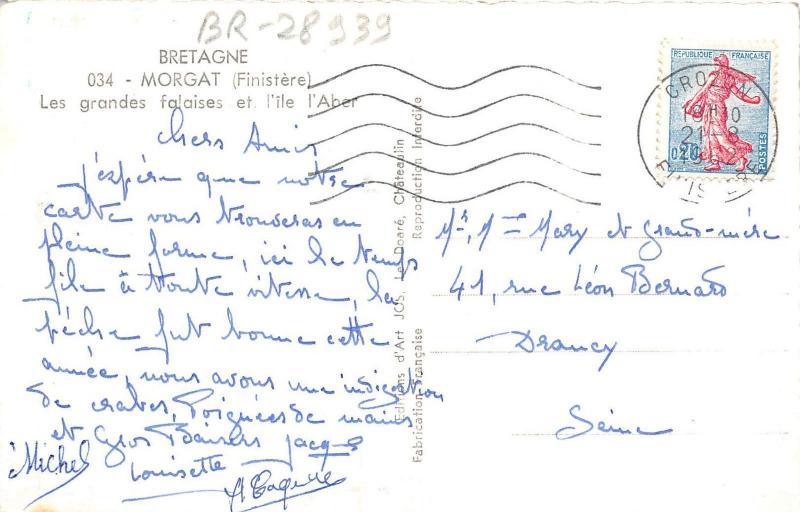 BR-28939
BRETAGNE
034 - MORGAT (Finistère)
Les grandes falaises et l'île l'Aber
Chers Amis
J'espère que notre
carte vous trouveras en
pleine forme, ici le temps
file à toute vitesse, la
pêche fut bonne cette
année, nous avons une indigestion
de crabes, Poignées de mains
et Gros Baisers Jacques
Michel
Louisette
Editions d'Art JOS. Le Doaré, Châteaulin
Fabrication Française Reproduction Interdite
REPUBLIQUE FRANÇAISE
0,20
POSTES
CROZON
21 - 8
FINISTERE
Mr, Mme Mary et Grand-mère
41, rue Léon Bernard
Drancy
Seine